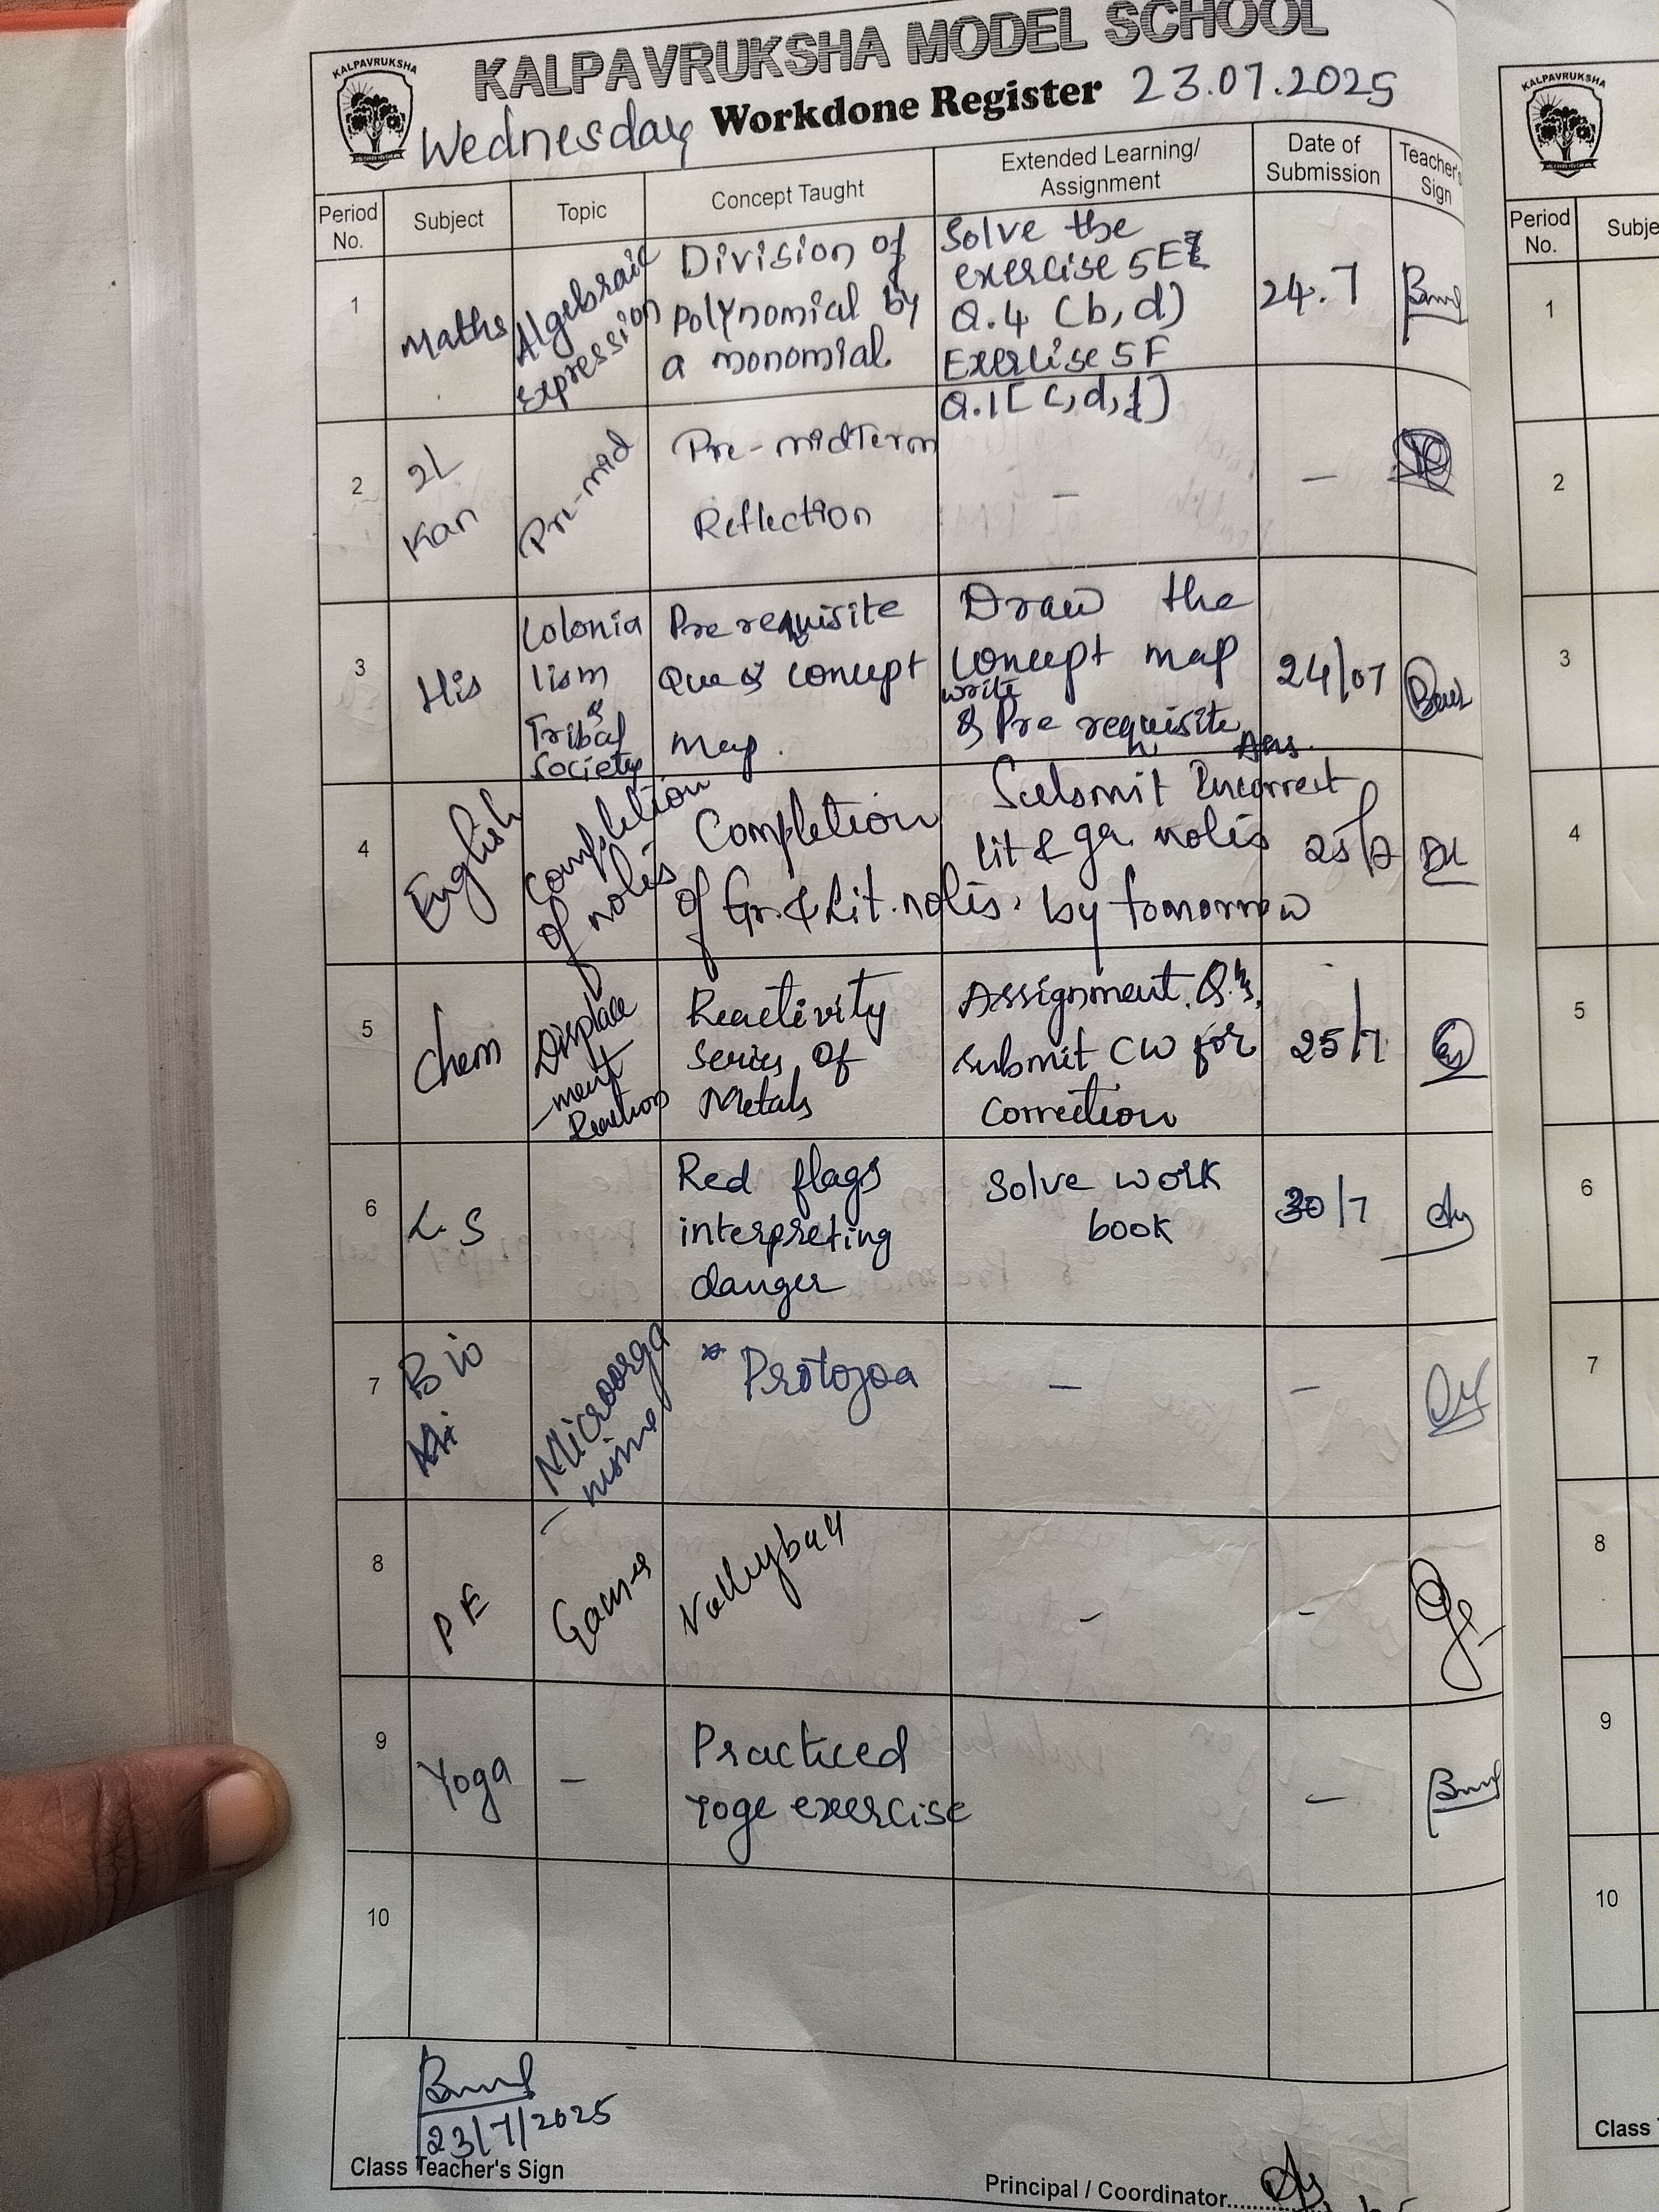 KALPAVRUKSHA
KALPAVRUKSHA MODEL SCHOOL
Wednesday Workdone Register 23.07.2025
Period No. Subject Topic Concept Taught Extended Learning/ Assignment Date of Submission Teacher's Sign
1 Maths Algebraic Expression
Division of
polynomial by
a monomial
Solve the
exercise 5E
Q.4 (b,d)
Exercise 5F
Q.1[c,d,f]
24.7
2 2L
Kan
Pre-mid
Pre-midTerm
Reflection
-
-
3 His
Colonia
lism
&
Tribal
Society
Pre requisite
Que & concept
Map.
Draw the
concept map
write
& Pre requisite
Ans.
24/07
4 English
Completion
of notes
Completion
of Gr. & Lit. notes.
Submit Incorrect
lit & gr. notes
by tomorrow
25/7
5 Chem
Displace
-ment
Reactions
Reactivity
series of
Metals
Assignment. Q.'s,
submit CW for
correction
25/7
6 L.S
Red flags
interpreting
danger
Solve work
book
30/7
7 Bio
Microorga
-nisms
* Protozoa
-
-
8 PE
Games
Volleyball
-
-
9 Yoga
-
Practiced
Yoge exercise
-
10
23/7/2025
Class Teacher's Sign
Principal / Coordinator........
KALPAVRUKSHA
Period No. Subje
1
2
3
4
5
6
7
8
9
10
Class